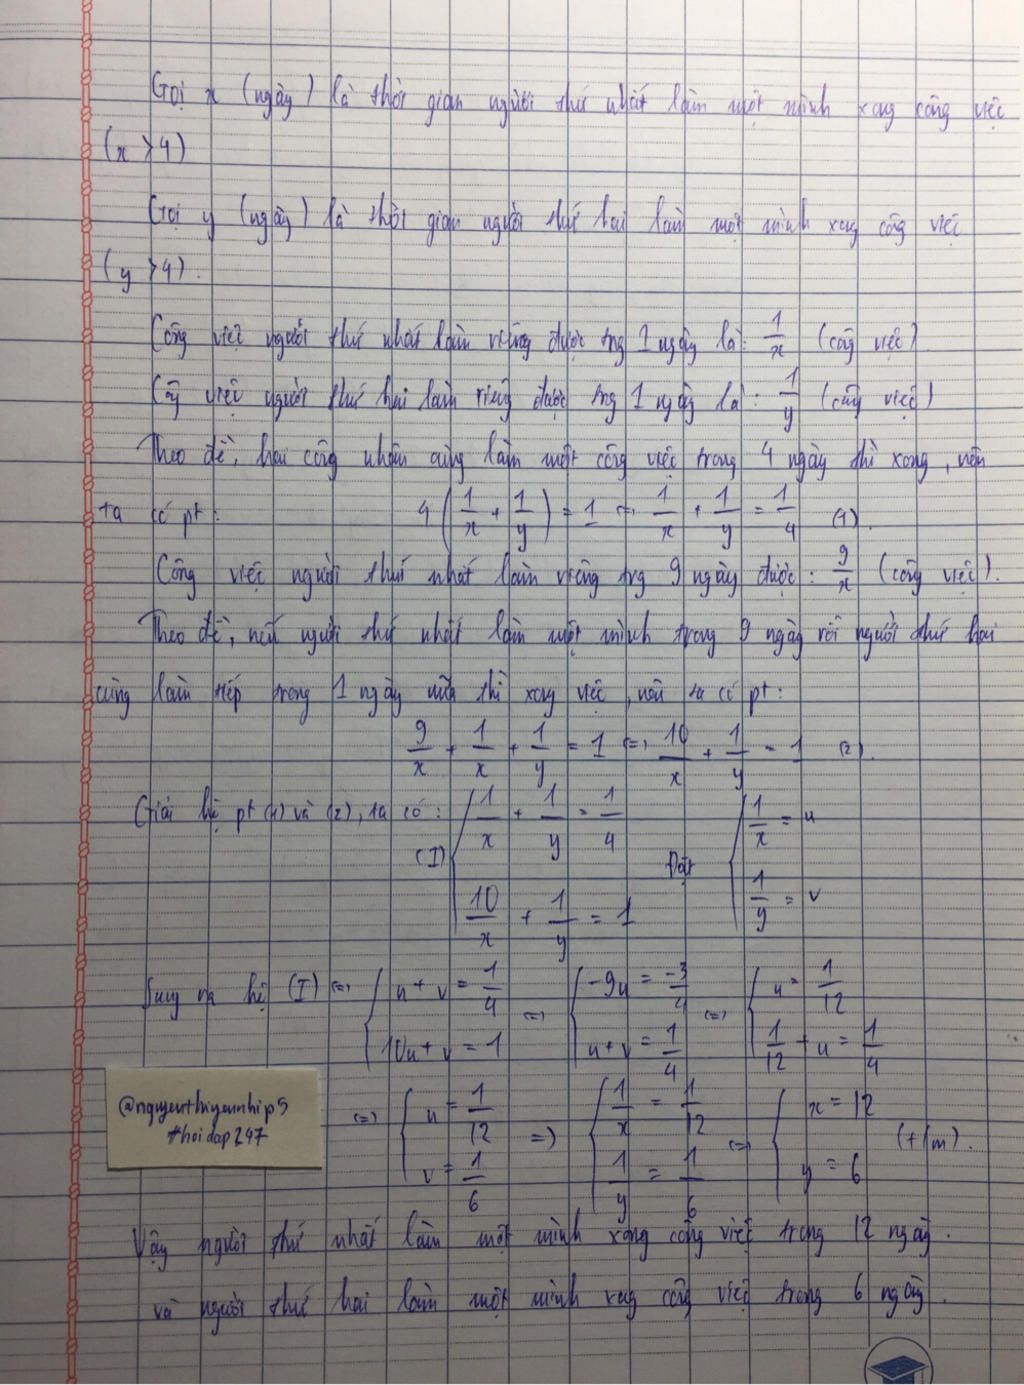 Gọi x (ngày) là thời gian người thứ nhất làm một mình xong công việc
(x > 4)
Gọi y (ngày) là thời gian người thứ hai làm một mình xong công việc
(y > 4).
Công việc người thứ nhất làm riêng được trg 1 ngày là: 1/x (công việc)
Công việc người thứ hai làm riêng được trg 1 ngày là: 1/y (công việc)
Theo đề, hai công nhân cùng làm một công việc trong 4 ngày thì xong, nên
ta có pt: 4(1/x + 1/y) = 1 (=) 1/x + 1/y = 1/4 (1).
Công việc người thứ nhất làm riêng trg 9 ngày được: 9/x (công việc).
Theo đề, nếu người thứ nhất làm một mình trong 9 ngày rồi người thứ hai
cùng làm tiếp trong 1 ngày nữa thì xong việc, nên ta có pt:
9/x + 1/x + 1/y = 1 (=) 10/x + 1/y = 1 (2).
Giải hệ pt (1) và (2), ta có: (I) { 1/x + 1/y = 1/4 Đặt { 1/x = u
10/x + 1/y = 1 1/y = v
Suy ra hệ (I) (=) { u + v = 1/4 (=) { -9u = -3/4 (=) { u = 1/12
10u + v = 1 u + v = 1/4 1/12 + u = 1/4
(=) { u = 1/12 =) { 1/x = 1/12 (=) { x = 12 (t/m).
v = 1/6 1/y = 1/6 y = 6
@nguyenthiyeunhip5
#hoidap247
Vậy người thứ nhất làm một mình xong công việc trong 12 ngày.
và người thứ hai làm một mình xong công việc trong 6 ngày.